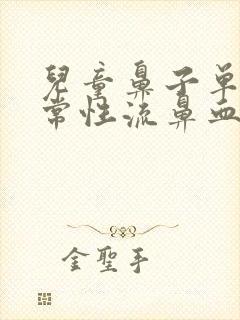 兒童鼻子單
常性流鼻血
金聖手